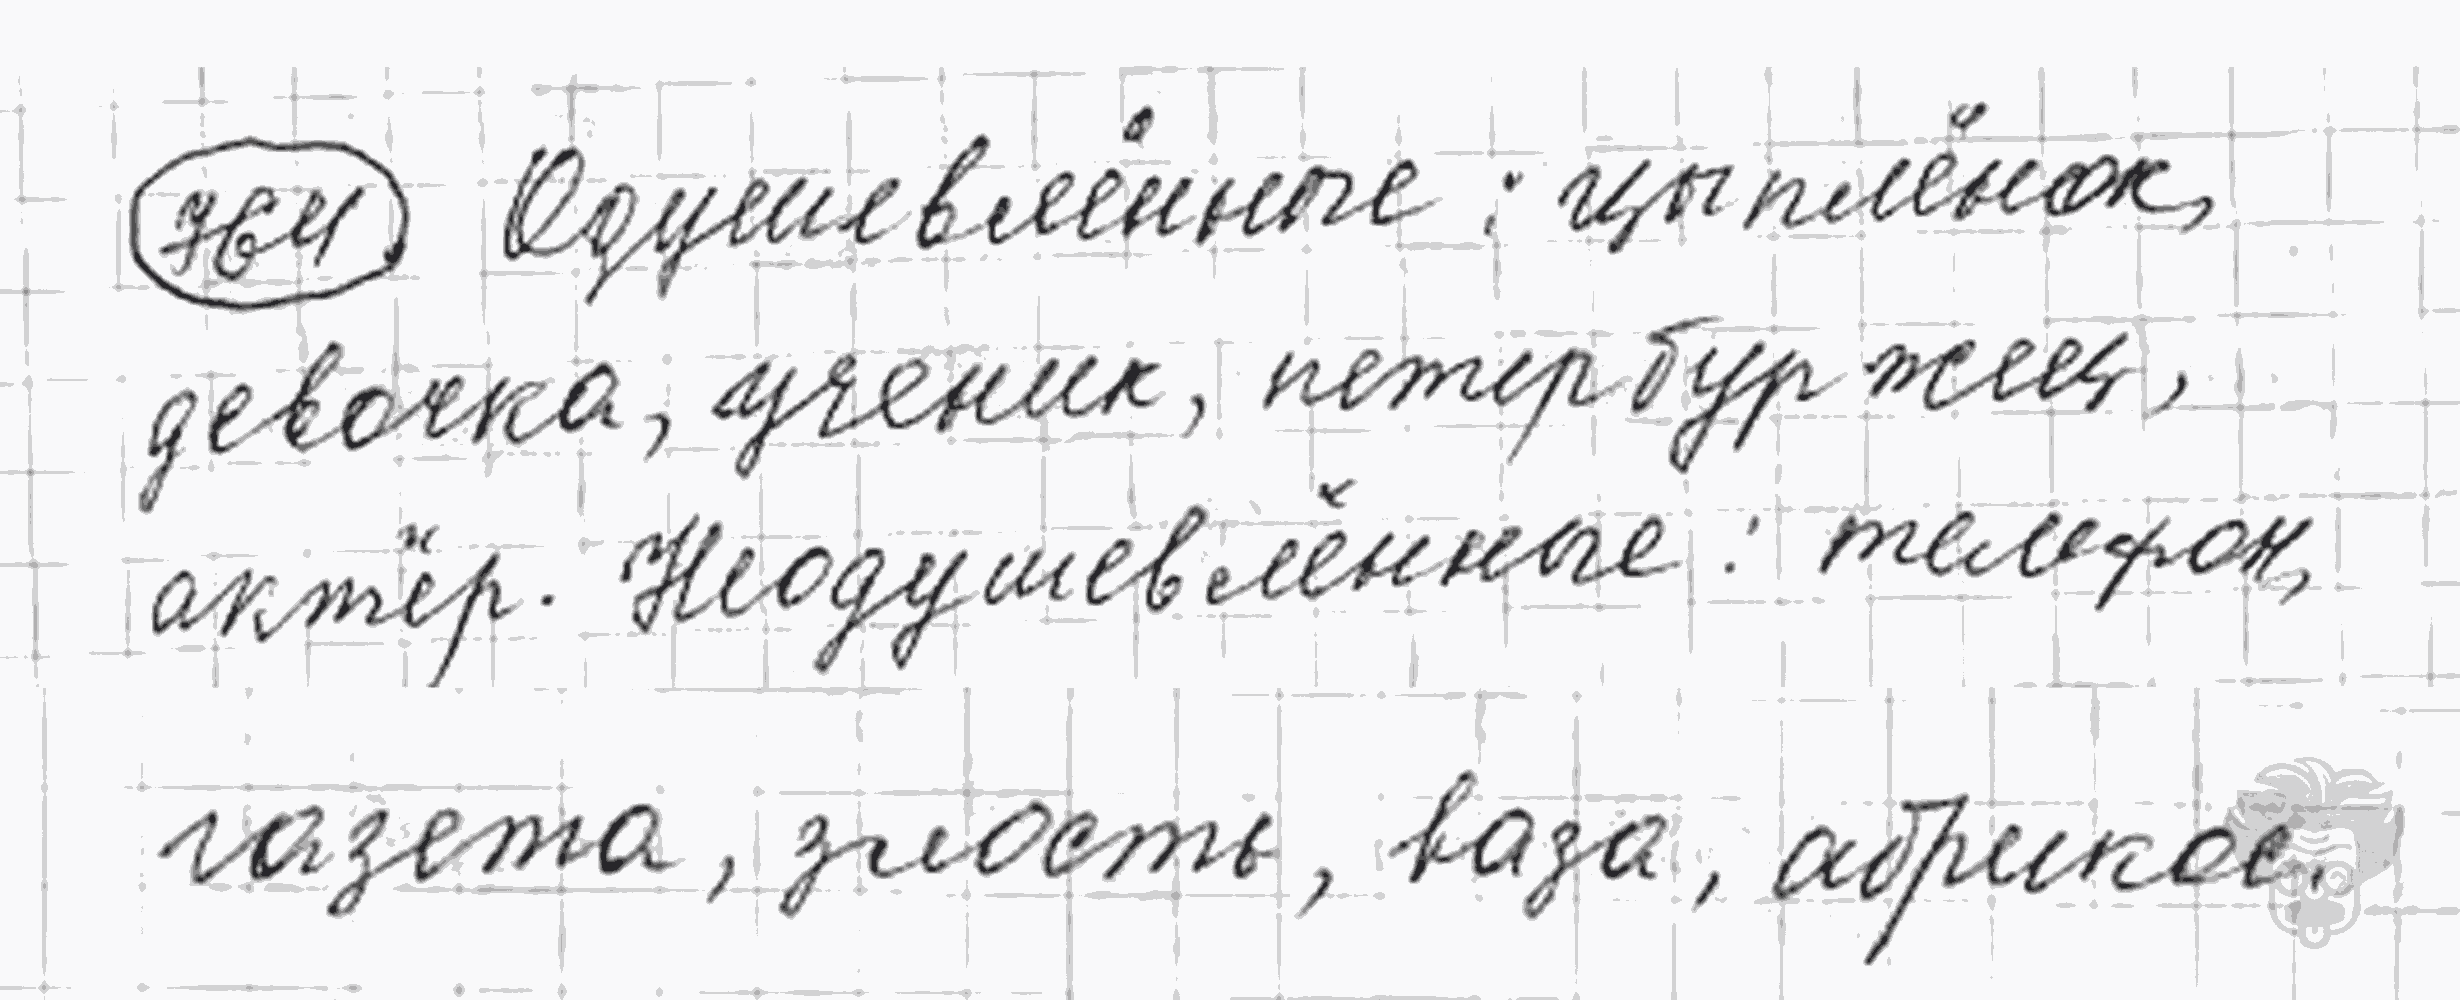 764 Одушевлённые: цыплёнок,
девочка, ученик, петербуржец,
актёр. Неодушевлённые: телефон,
газета, злость, ваза, абрикос.